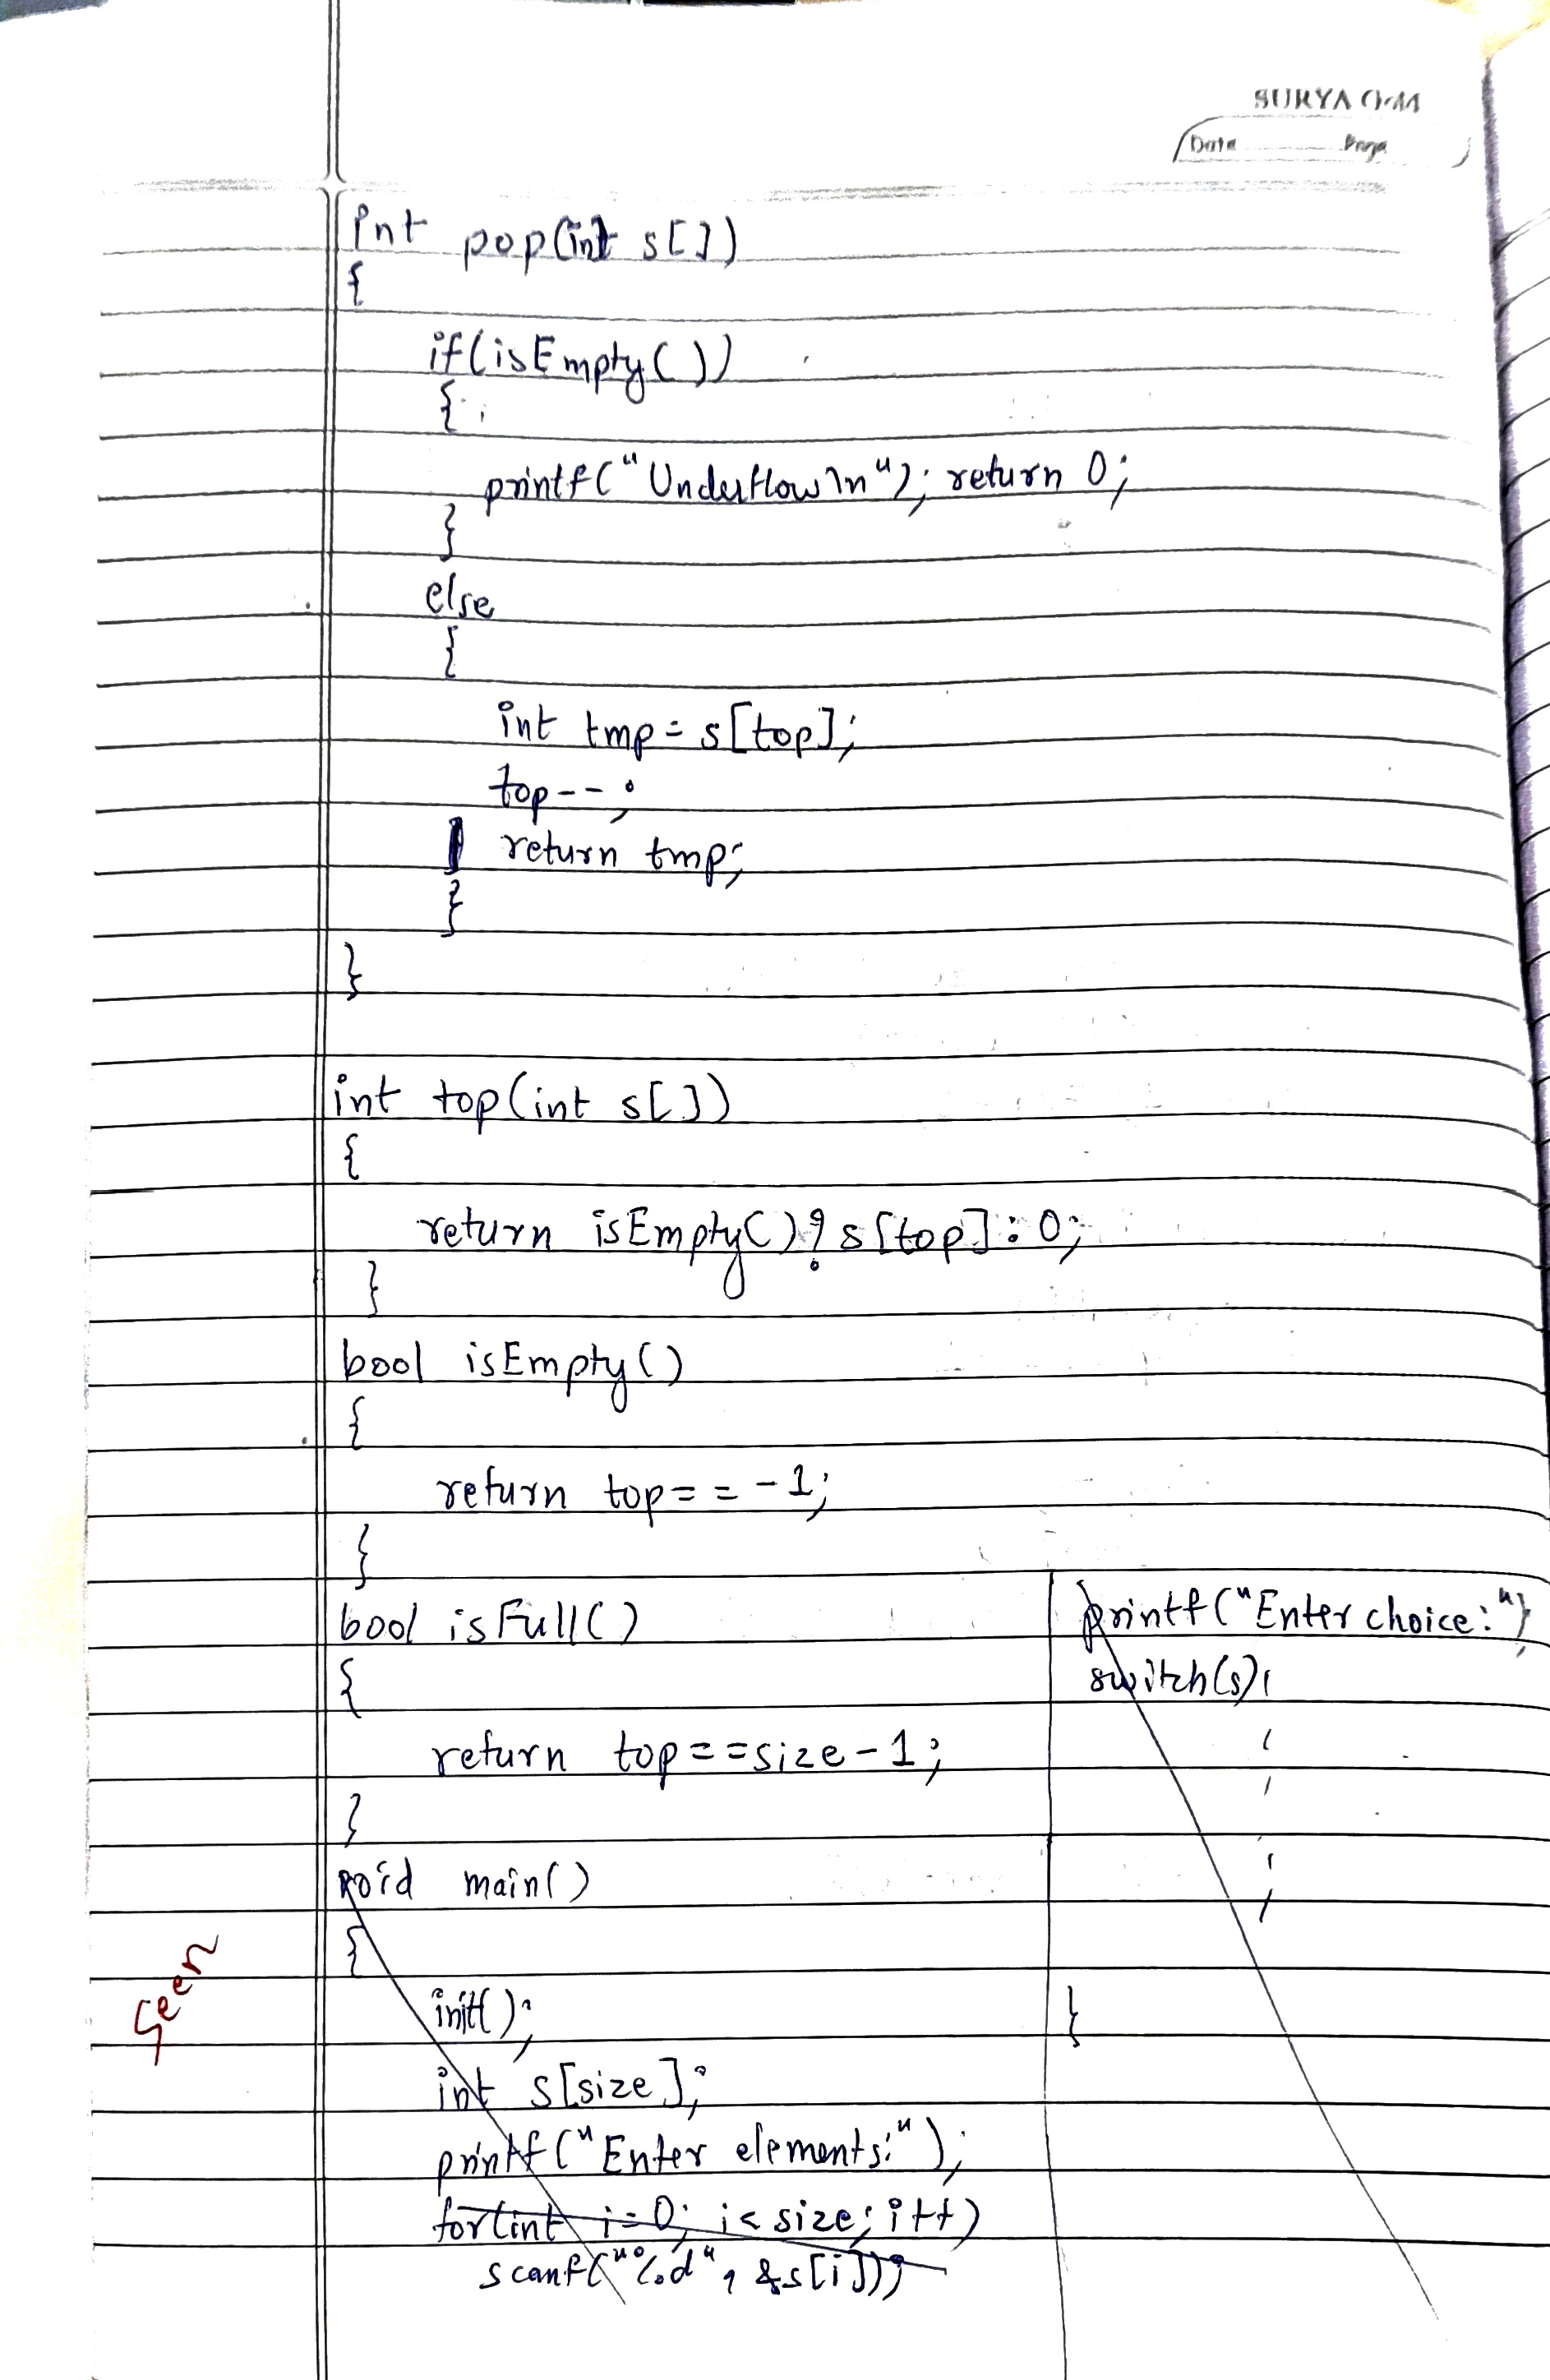 SURYA Gold
Date Page
int pop(int s[])
{
if(isEmpty())
{
printf("Underflow\n"); return 0;
}
else
{
int tmp = s[top];
top--;
return tmp;
}
}
int top(int s[])
{
return isEmpty()? s[top]:0;
}
bool isEmpty()
{
return top==-1;
}
bool isFull()
{
return top==size-1;
}
void main()
{
init();
int s[size];
printf("Enter elements:");
for(int i=0; i<size; i++)
scanf("%d", &s[i]);
printf("Enter choice:");
switch(s)
}
Seen